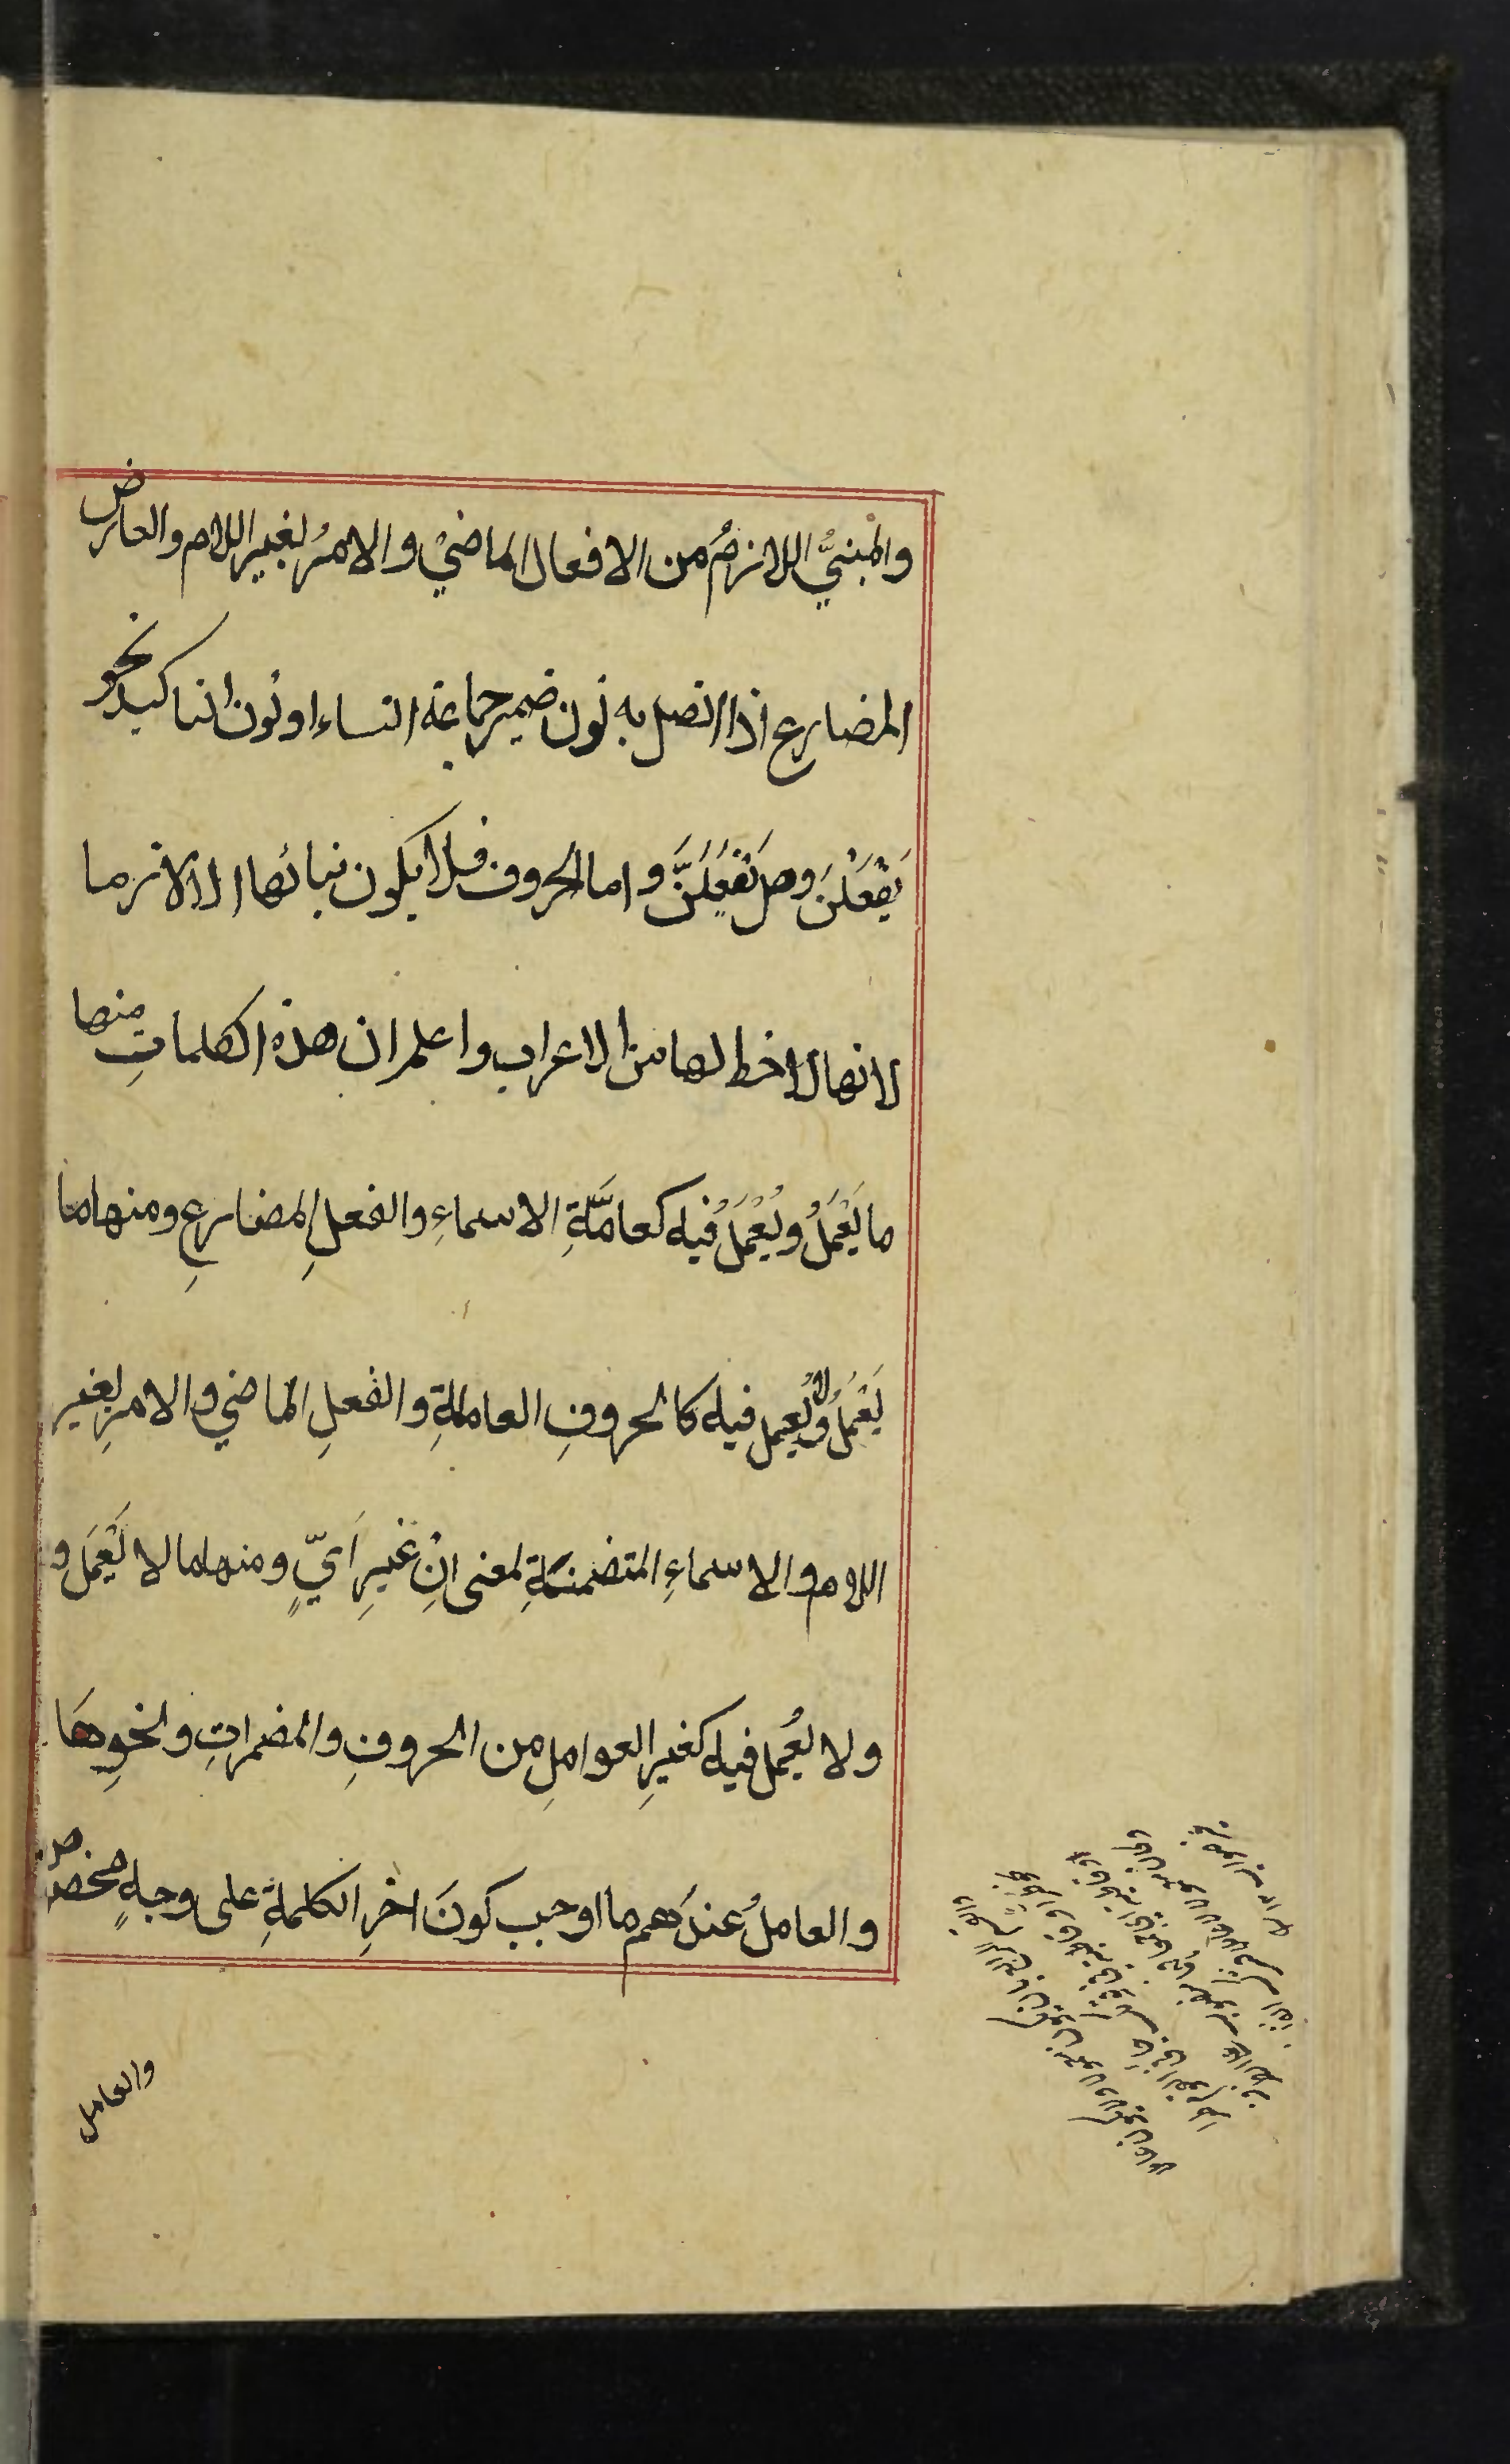 والمبنيُّ اللازمُ من الافعال الماضيْ والامرُ بغير اللام والعارض
المضارع اذا اتصل به نون ضمير جماعة النساء او نون التاكيد نحو
يَفْعَلْنَ وهل تَفْعَلَنَّ واما الحروف فلا يكون بنائها الا لازما
لانها لا حظ لها من الاعراب واعلم ان هذه الكلماتِ منها
ما يَعْمَلُ ويُعْمَلُ فيه كعامَّةِ الاسماءِ والفعلِ المضارعِ ومنها ما
يَعْمَلُ ولا يُعمل فيه كالحروفِ العاملةِ والفعلِ الماضي والامرِ بغير
اللام والاسماءِ المتضمنةِ لمعنى انْ غيرِ اَيٍّ ومنها ما لا يَعْمَل و
ولا يُعمل فيه كغيرِ العواملِ من الحروفِ والمضمراتِ ونحوِها
والعاملُ عندَهم ما اوجب كونَ اخرِ الكلمةِ على وجهٍ مخصوص
والعامل